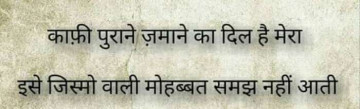 काफ़ी पुराने ज़माने का दिल है मेरा
इसे जिस्मो वाली मोहब्बत समझ नहीं आती